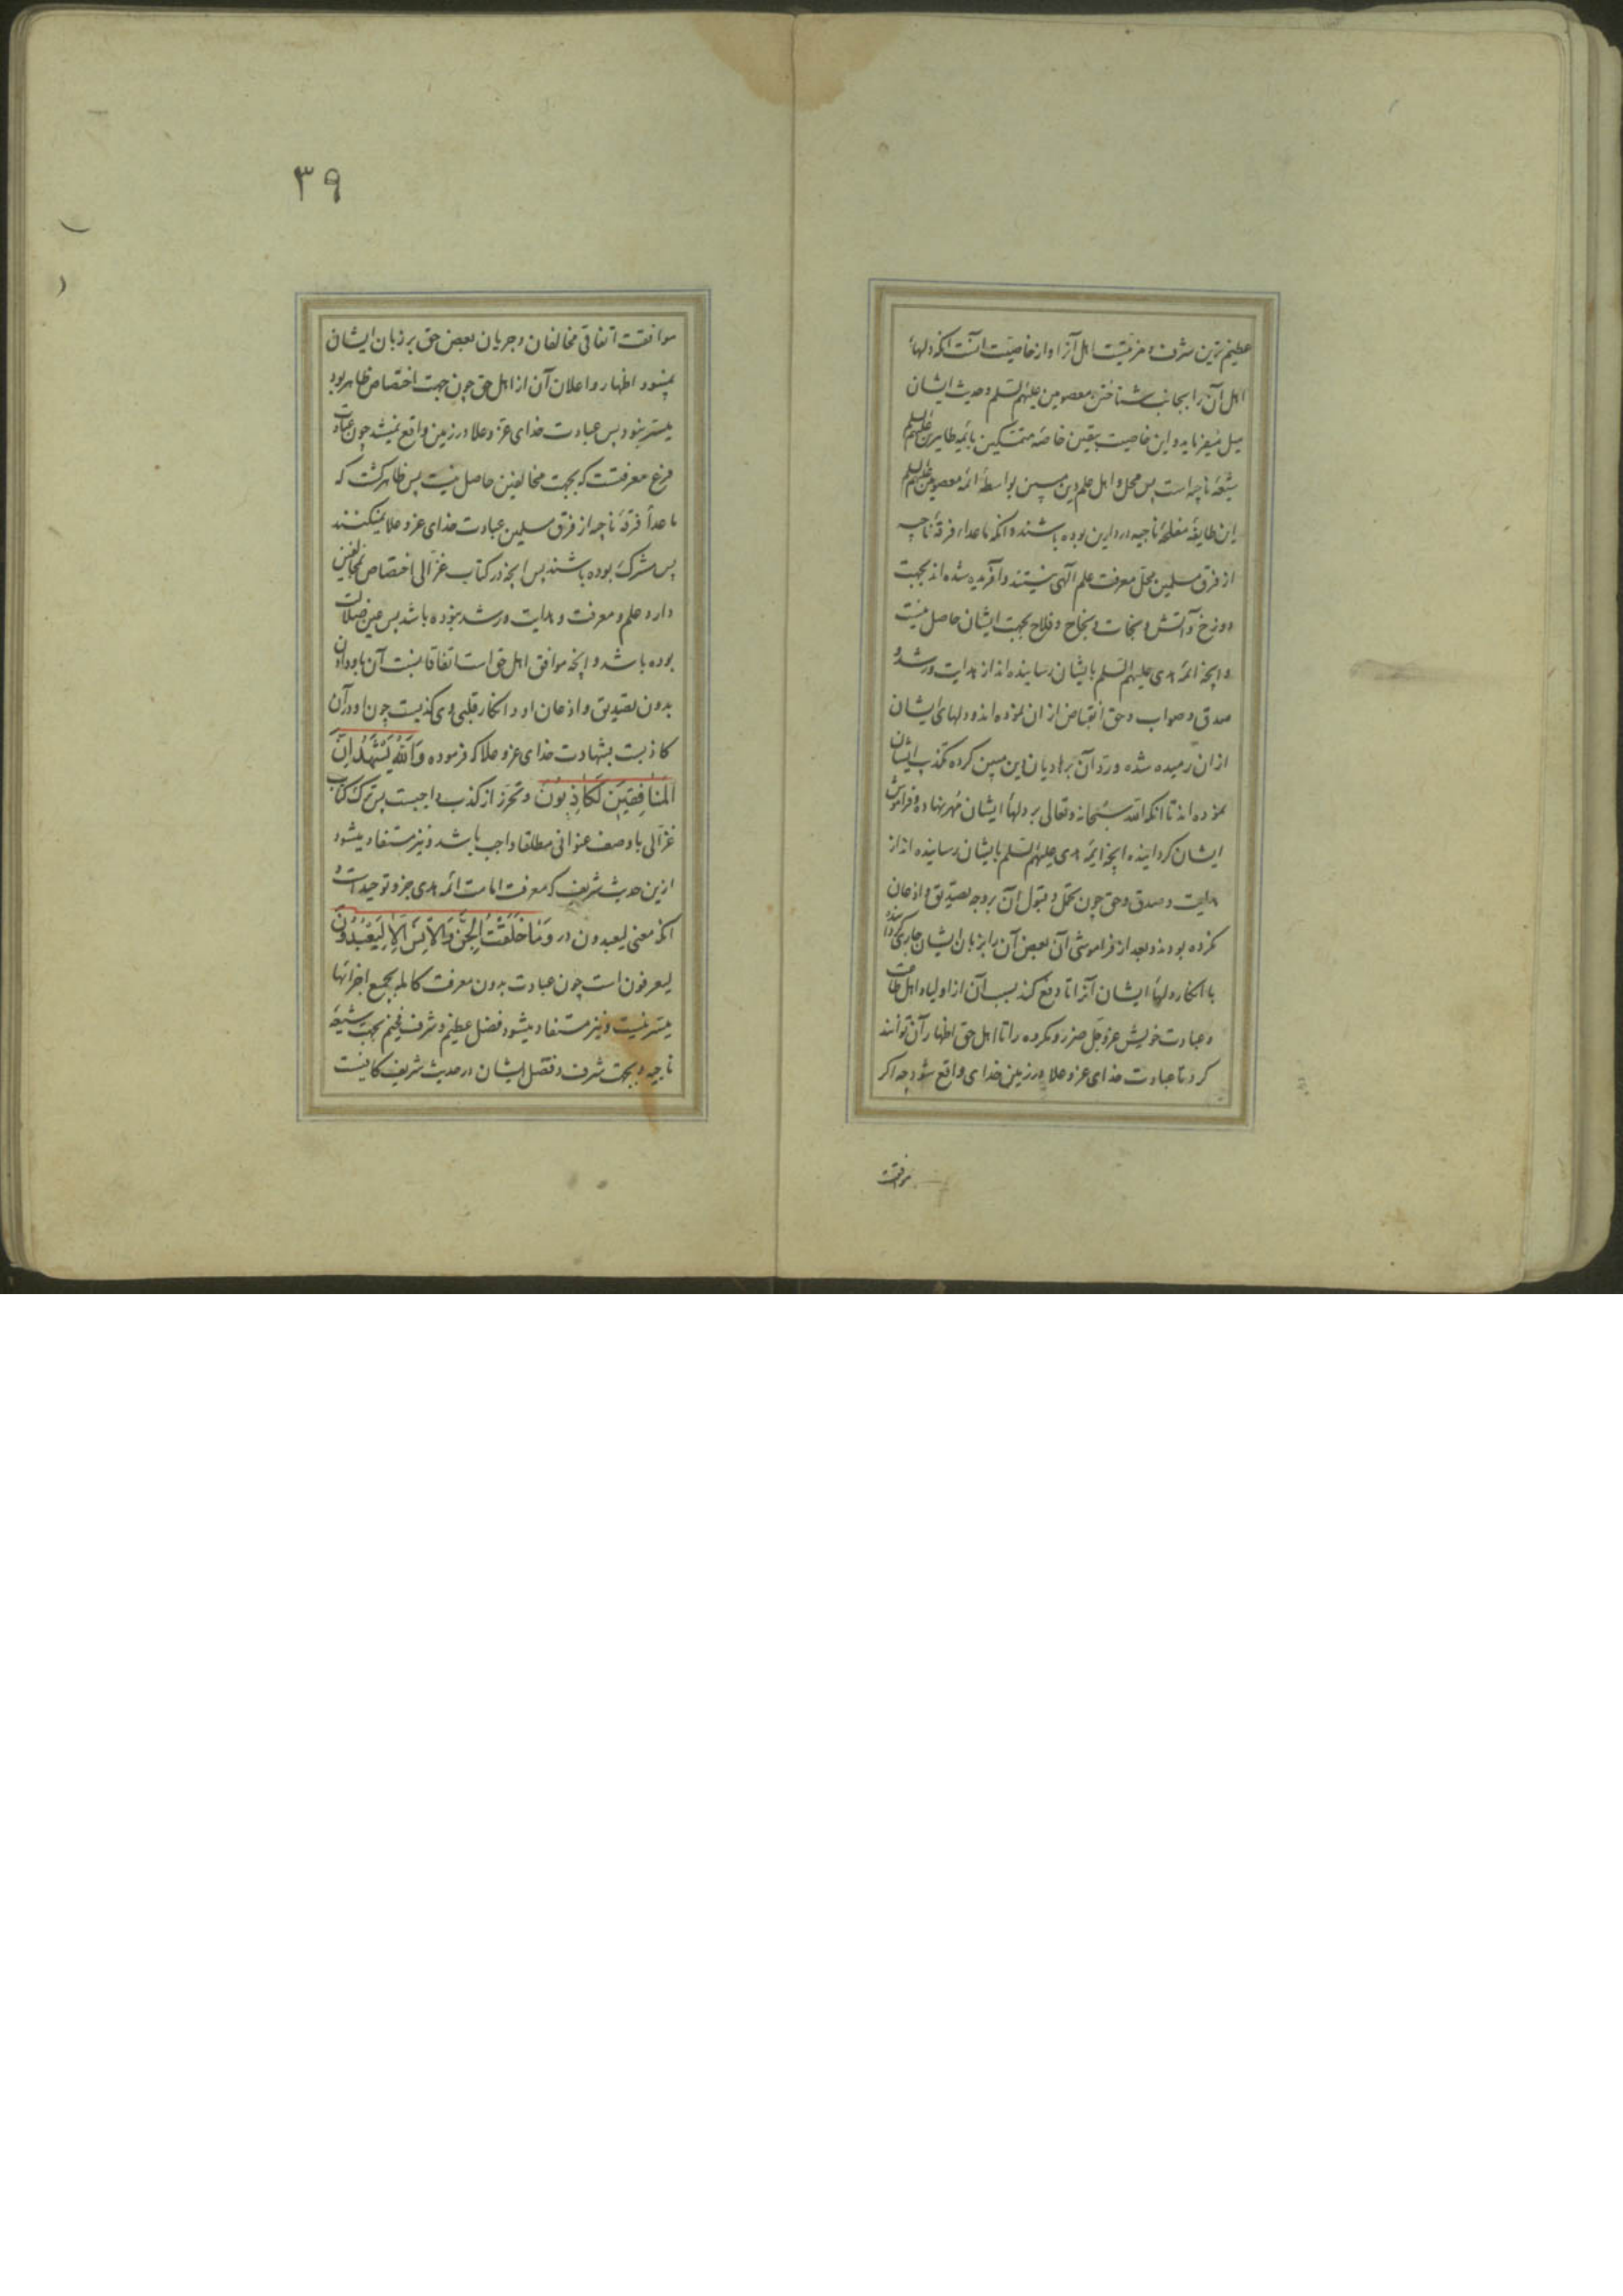 عظیم ترین شرف و مزیتیست اهل آنرا و از خاصیت آنست آنکه دلهاء
اهل آن را بجانب شناختن معصومین علیهم السلم و حدیث ایشان
میل میفرماید و این خاصیت بیقین خاصهٔ متمسکین بائمه طاهرین علیهم السلم
شیعهٔ ناجیه است پس محل و اهل علم دین مبین بواسطهٔ ائمه معصومین علیهم السلم
این طایفهٔ مفلحهٔ ناجیه در دارین بوده باشند و آنکه ماعداء فرقهٔ ناجیه
از فرق مسلمین محل معرفت علم آلهی نیستند و آفریده شده اند بجهت
دوزخ و آتش و نجات و نجاح و فلاح بجهت ایشان حاصل نیست
و آنچه ائمهٔ هدی علیهم السلم بایشان رسانیده اند از هدایت و رشد و
صدق و صواب و حق انقباض از ان نموده اند و دلهای ایشان
از ان رمیده شده و رد آن بر هادیان دین مبین کرده تکذیب ایشان
نموده اند تا آنکه الله سبحانه و تعالی بر دلهاء ایشان مهر نهاده و فراموش
ایشان کردانیده آنچه ائمهٔ هدی علیهم السلم بایشان رسانیده اند از
هدایت و صدق و حق چون تحمل و قبول آن بر وجه تصدیق و اذعان
نکرده بودند و بعد از فراموشی آن بعض آن را بر زبان ایشان جاری کرداننده
با انکار دلهاء ایشان آنرا تا دفع کند بسبب آن از اولیاء و اهل طاعت
و عبادت خویش عز و جل ضرر و مکروه را تا اهل حق اظهار آن توانند
کرد تا عبادت خدای عز و علا در زمین خدای واقع شود چه اکر
موافقت
۳۹
موافقت اتفاقی مخالفان و جریان بعض حق بر زبان ایشان
نمیبود اظهار و اعلان آن از اهل حق چون جهت اختصاص ظاهر بود
میسر نبود پس عبادت خدای عز و علا در زمین واقع نمیشد چون عبادت
فرع معرفتست که بجهت مخالفین حاصل نیست پس ظاهر کشت که
ماعداء فرقهٔ ناجیه از فرق مسلمین عبادت خدای عز و علا نمیکنند
پس مشرک بوده باشند پس آنچه در کتاب غزالی اختصاص بمخالفین
دارد علم و معرفت و هدایت و رشد نبوده باشد پس عین ضلالت
بوده باشد و آنچه موافق اهل حق است اتفاقا نسبت آن باو دادن
بدون تصدیق و اذعان او و انکار قلبی وی کذبست چون او در آن
کاذبست بشهادت خدای عز و علا که فرموده وَاللّٰهُ یَشْهَدُ اِنَّ
المُنَافِقِینَ لَکَاذِبُونَ و تحرز از کذب واجبست پس ترک کتاب
غزالی با وصف عنوانی مطلقا واجب باشد و نیز مستفاد میشود
ازین حدیث شریف که معرفت امامت ائمه هدی جزو توحید است و
آنکه معنی لیعبدون در وَمَا خَلَقْتُ الجِنَّ وَالاِنْسَ اِلاّ لِیَعْبُدُونِ
لیعرفون است چون عبادت بدون معرفت کامله بجمیع اجزائها
میسر نیست و نیز مستفاد میشود فضل عظیم و شرف فخیم بجهت شیعهٔ
ناجیه و بجهت شرف و فضل ایشان در حدیث شریف کافیست